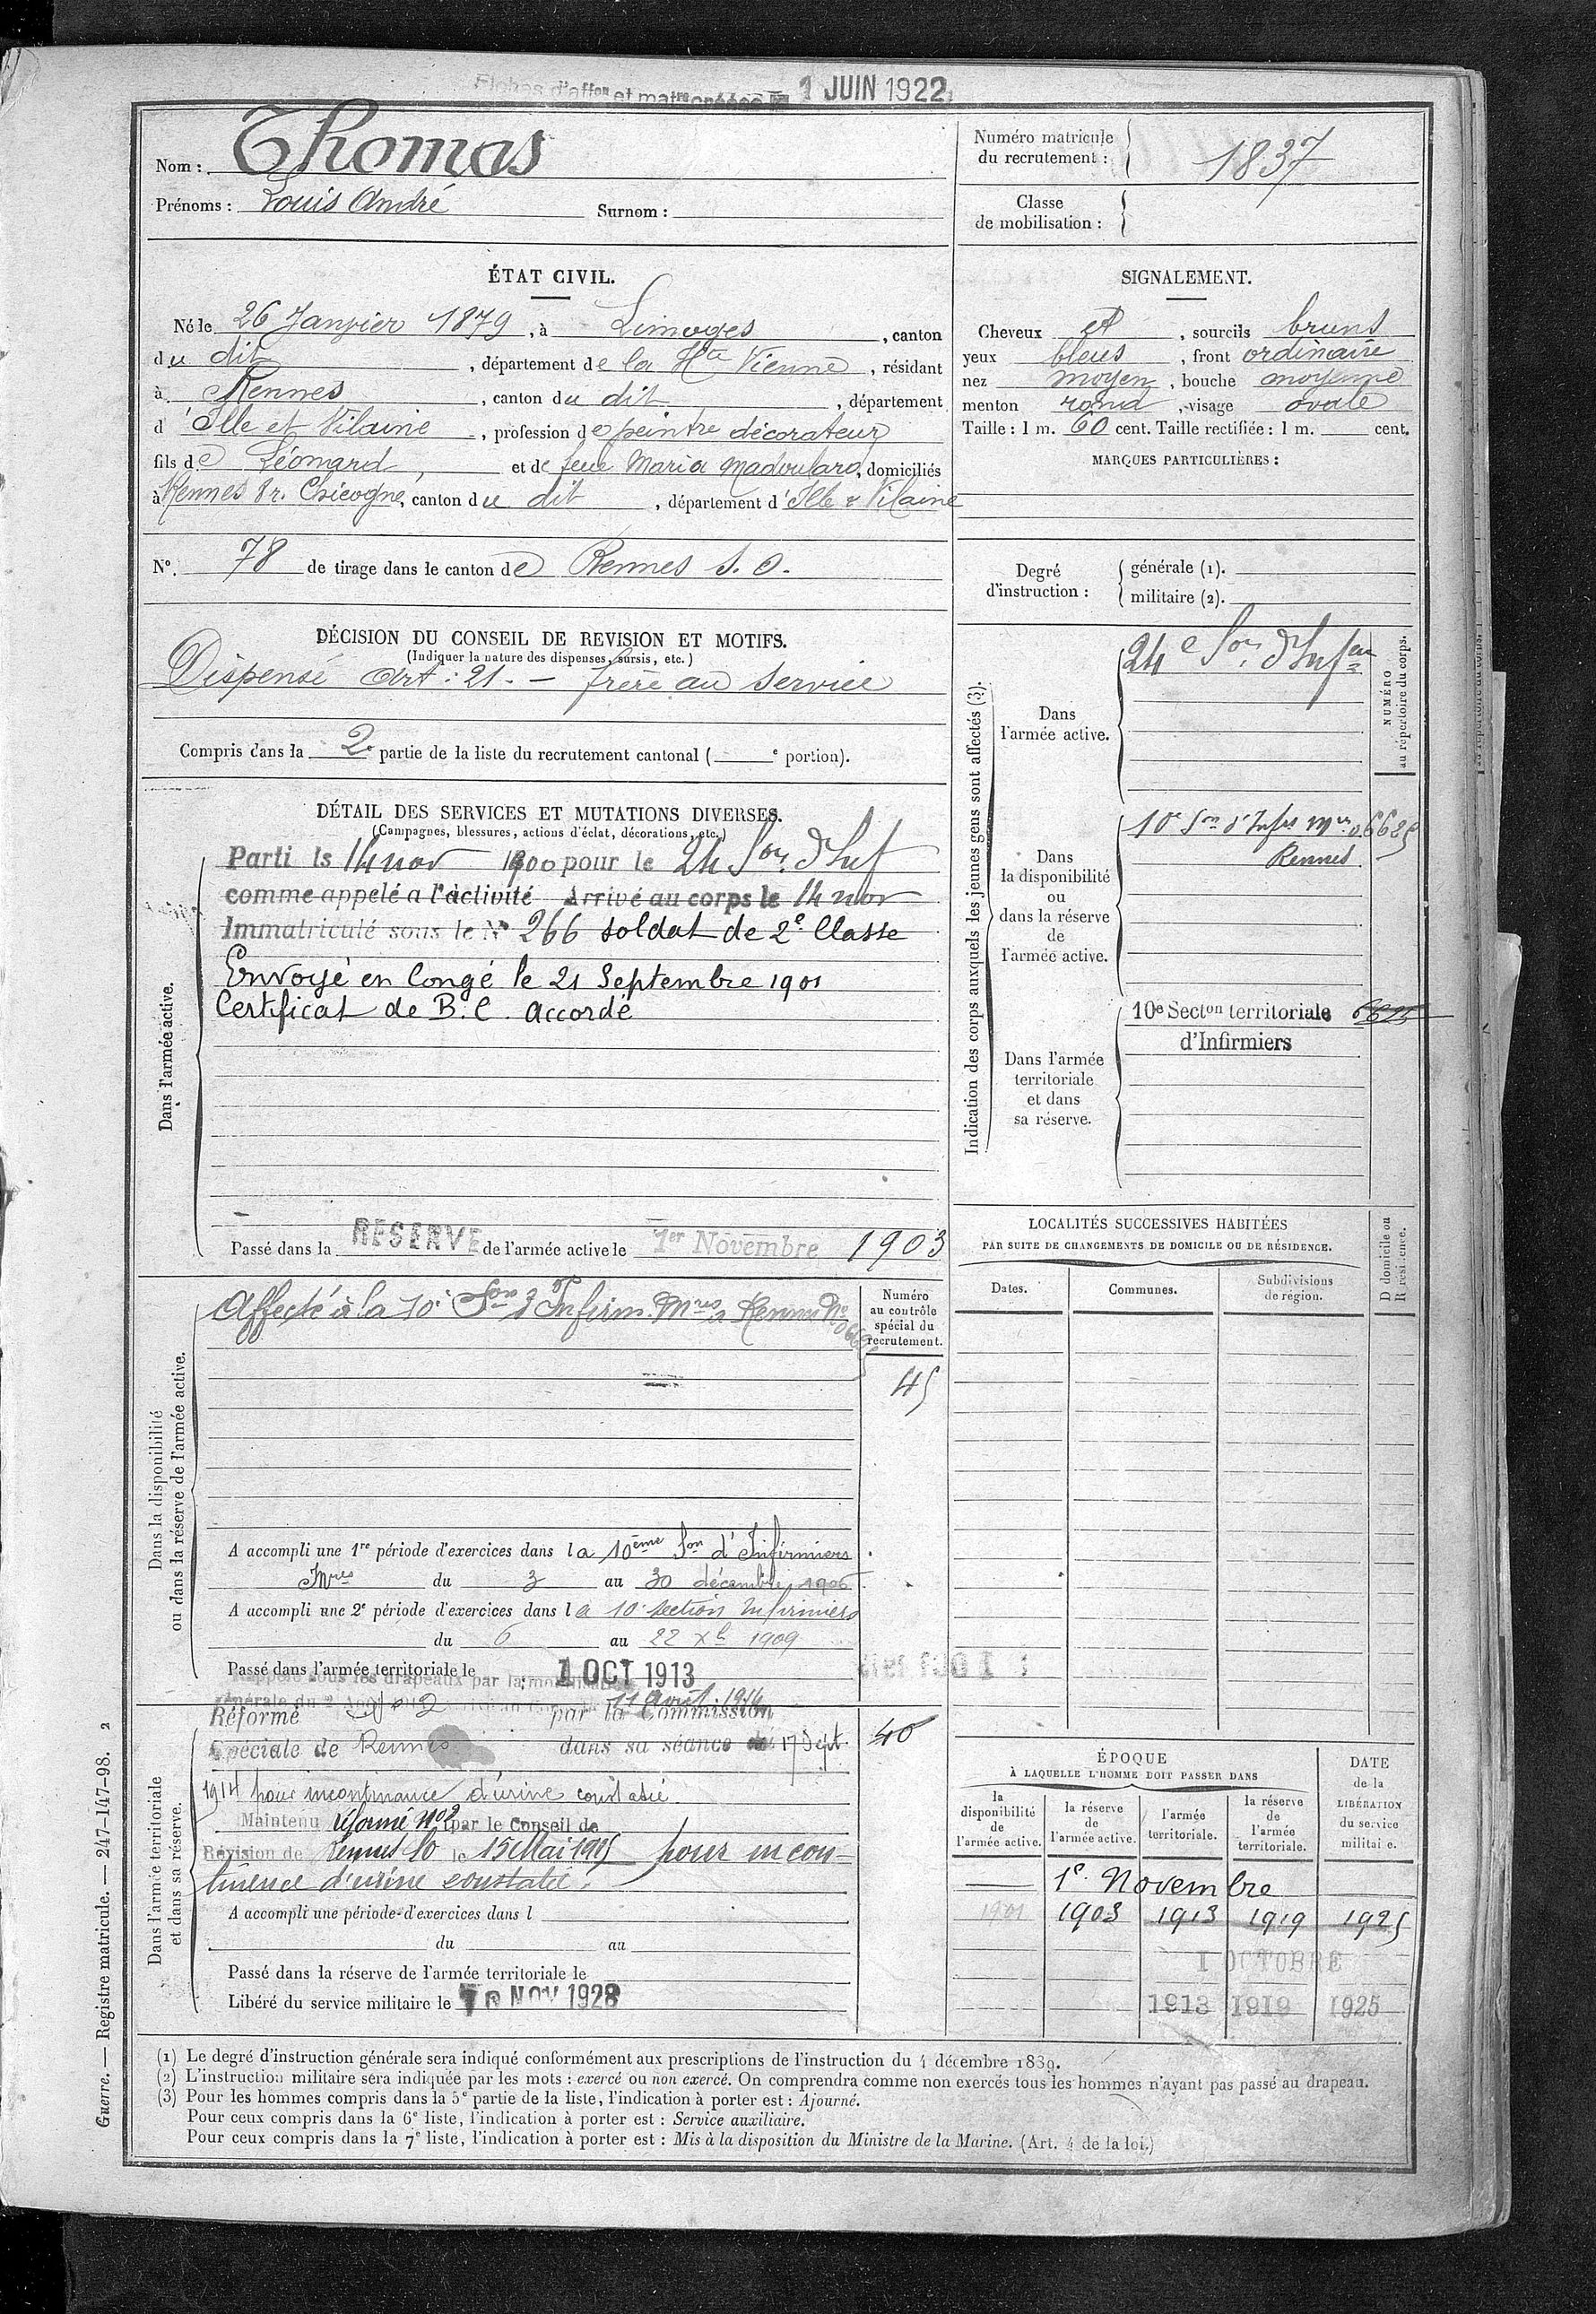 Fiches d'affon et matre créées le 1 JUIN 1922
Nom : Thomas
Prénoms : Louis André Surnom :
Numéro matricule
du recrutement : 1837
Classe
de mobilisation :
ÉTAT CIVIL.
Né le 26 Janvier 1879, à Limoges, canton
du dit, département de la Hte Vienne, résidant
à Rennes, canton du dit, département
d'Ille et Vilaine, profession de peintre décorateur
fils de Léonard, et de feue Maria Madoulard, domiciliés
à Rennes 8 r. Chicogné, canton du dit, département d'Ille & Vilaine
N°. 78 de tirage dans le canton de Rennes S. O.
SIGNALEMENT.
Cheveux et, sourcils bruns
yeux bleus, front ordinaire
nez moyen, bouche moyenne
menton rond, visage ovale
Taille : 1 m. 60 cent. Taille rectifiée : 1 m. cent.
MARQUES PARTICULIÈRES :
Degré
d'instruction :
générale (1).
militaire (2).
DÉCISION DU CONSEIL DE REVISION ET MOTIFS.
(Indiquer la nature des dispenses, sursis, etc.)
Dispensé Art : 21. - frère au service
Compris dans la 2e partie de la liste du recrutement cantonal ( e portion).
DÉTAIL DES SERVICES ET MUTATIONS DIVERSES.
(Campagnes, blessures, actions d'éclat, décorations, etc.)
Dans l'armée active.
Parti le 14 nov 1900 pour le 24 Son d'Inf
comme appelé à l'activité Arrivé au corps le 14 nov
Immatriculé sous le N° 266 soldat de 2e Classe
Envoyé en Congé le 21 Septembre 1901
Certificat de B. C. accordé
Passé dans la RESERVE de l'armée active le 1er Novembre 1903
Indication des corps auxquels les jeunes gens sont affectés (3).
Dans
l'armée active.
24e Son d'Infers
NUMÉRO
au répertoire du corps.
Dans
la disponibilité
ou
dans la réserve
de
l'armée active.
10e Son d'Infers Mres 06685
Rennes
Dans l'armée
territoriale
et dans
sa réserve.
10e Secton territoriale
d'Infirmiers
Dans la disponibilité
ou dans la réserve de l'armée active.
Affecté à la 10e Son d'Infirm. Mres à Rennes No 06685
Numéro
au contrôle
spécial du
recrutement.
45
A accompli une 1re période d'exercices dans la 10ème Son d'Infirmiers
Mres du 3 au 30 décembre 1906
A accompli une 2e période d'exercices dans la 10e section Infirmiers
du 6 au 22 Xbre 1909
Passé dans l'armée territoriale le 1 OCT 1913
LOCALITÉS SUCCESSIVES HABITÉES
PAR SUITE DE CHANGEMENTS DE DOMICILE OU DE RÉSIDENCE.
Dates.
Communes.
Subdivisions
de région.
D domicile ou
R résidence.
Dans l'armée territoriale
et dans sa réserve.
Rappelé sous les drapeaux par la mobilisation
générale du 2 Août 1914 11 août 1914
Réformé No 2 par la Commission
Spéciale de Rennes dans sa séance du 17 Sept.
1914 pour incontinence d'urine constatée.
Maintenu réformé No 2 par le Conseil de
Révision de Rennes SO le 15 Mai 1915 pour incon-
tinence d'urine constatée.
40
A accompli une période d'exercices dans l
du au
Passé dans la réserve de l'armée territoriale le
Libéré du service militaire le 10 NOV 1928
ÉPOQUE
À LAQUELLE L'HOMME DOIT PASSER DANS
la
disponibilité
de
l'armée active.
la réserve
de
l'armée active.
l'armée
territoriale.
la réserve
de
l'armée
territoriale.
DATE
de la
LIBÉRATION
du service
militaire.
1er Novembre
1901 1903 1913 1919 1925
1 OCTOBRE
1913 1919 1925
(1) Le degré d'instruction générale sera indiqué conformément aux prescriptions de l'instruction du 4 décembre 1889.
(2) L'instruction militaire sera indiquée par les mots : exercé ou non exercé. On comprendra comme non exercés tous les hommes n'ayant pas passé au drapeau.
(3) Pour les hommes compris dans la 5e partie de la liste, l'indication à porter est : Ajourné.
Pour ceux compris dans la 6e liste, l'indication à porter est : Service auxiliaire.
Pour ceux compris dans la 7e liste, l'indication à porter est : Mis à la disposition du Ministre de la Marine. (Art. 4 de la loi.)
Guerre. — Registre matricule. — 247-147-98. 2